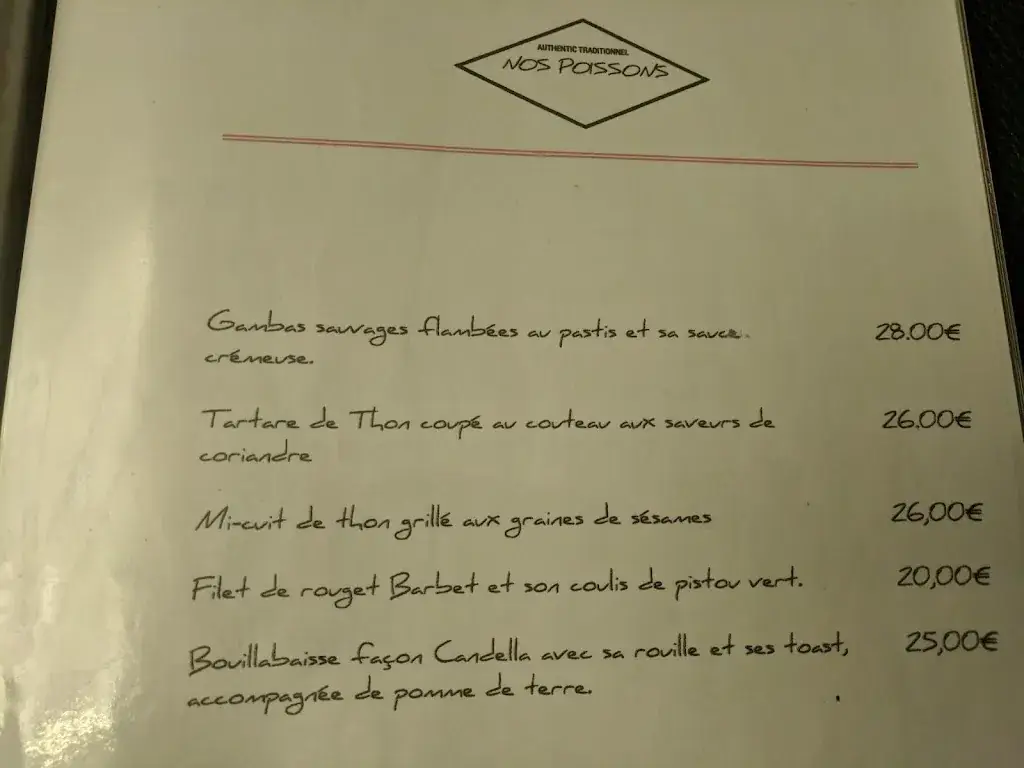 AUTHENTIC TRADITIONNEL
NOS POISSONS
Gambas sauvages flambées au pastis et sa sauce 28.00€
crémeuse.
Tartare de Thon coupé au couteau aux saveurs de 26.00€
coriandre
Mi-cuit de thon grillé aux graines de sésames 26,00€
Filet de rouget Barbet et son coulis de pistou vert. 20,00€
Bouillabaisse façon Candella avec sa rouille et ses toast, 25,00€
accompagnée de pomme de terre.